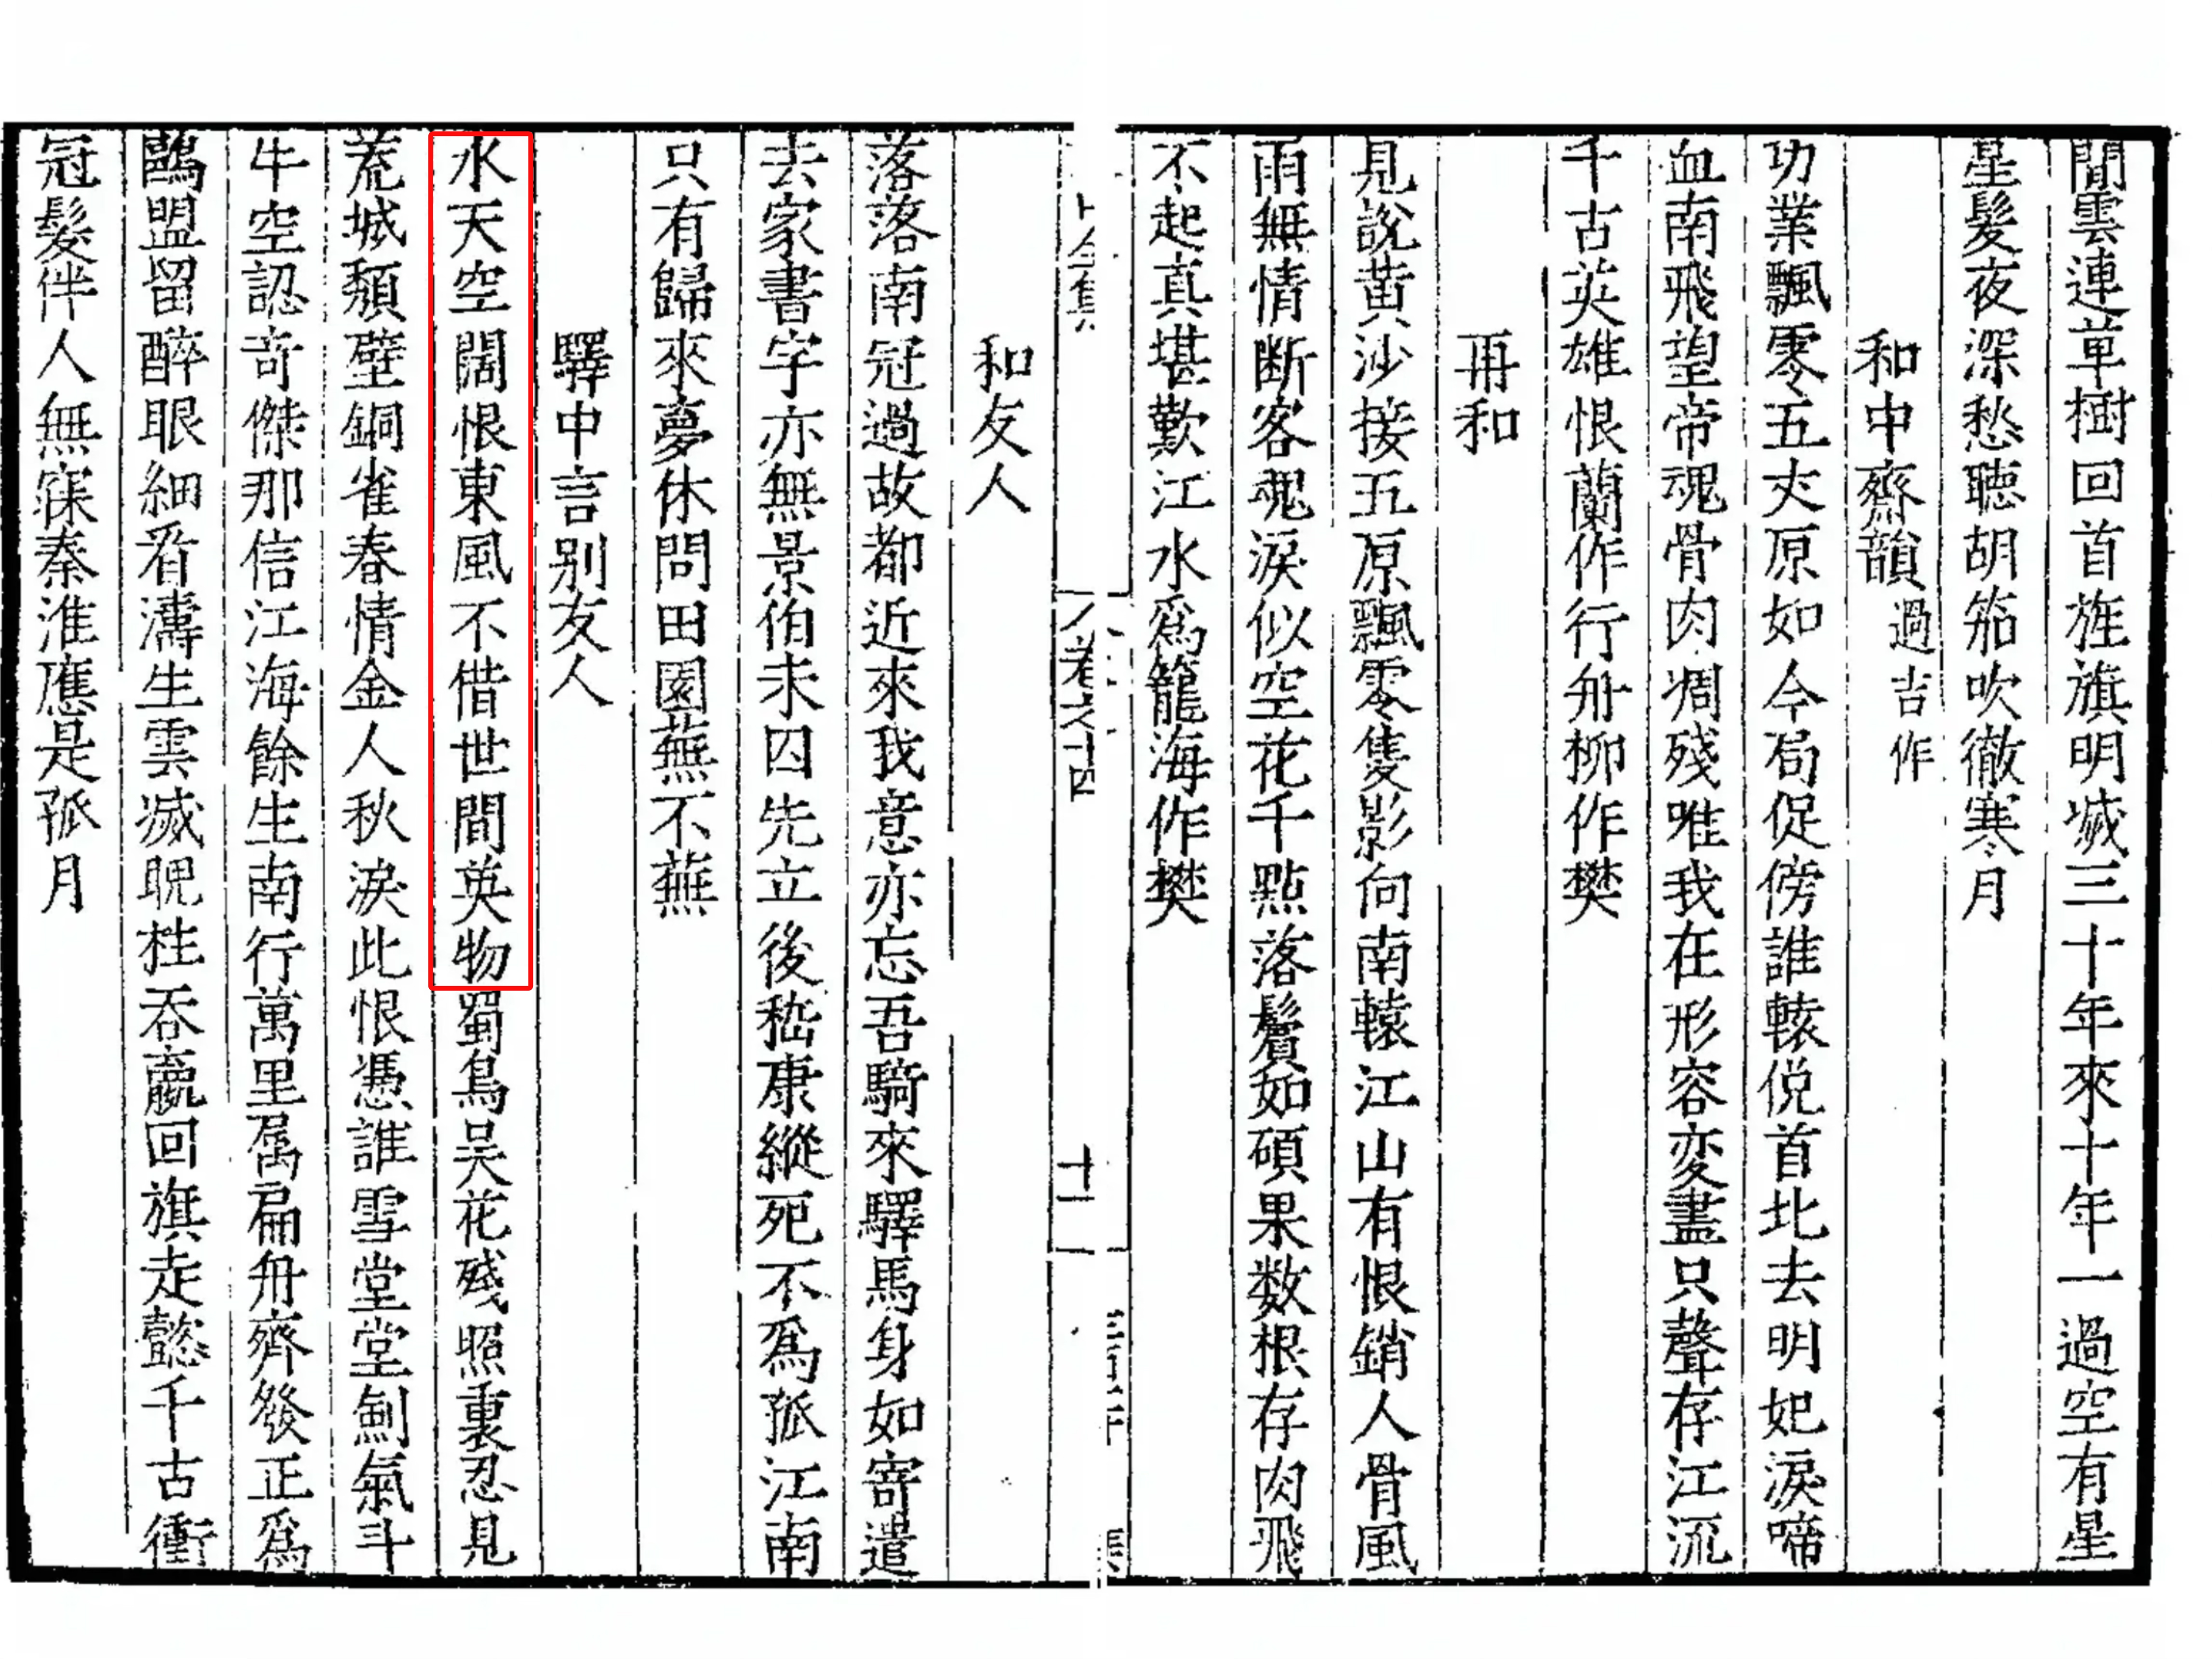 間雲連草樹回首旌旗明滅三十年來十年一過空有星
星髮夜深愁聽胡笳吹徹寒月
和中齋韻過吉作
功業飄零五丈原如今局促傍誰轅俛首北去明妃淚啼
血南飛望帝魂骨肉凋殘唯我在形容変盡只聲存江流
千古英雄恨蘭作行舟柳作樊
再和
見說黃沙接五原飄零隻影向南轅江山有恨銷人骨風
雨無情断客魂淚似空花千點落鬢如碩果数根存肉飛
不起真堪歎江水爲籠海作樊
卷之十四
十一
和友人
落落南冠過故都近來我意亦忘吾騎來驛馬身如寄遣
去家書字亦無景伯未囚先立後嵇康縱死不爲孤江南
只有歸來夢休問田園蕪不蕪
驛中言别友人
水天空闊恨東風不借世間英物蜀鳥吴花殘照裏忍見
荒城頹壁銅雀春情金人秋淚此恨憑誰雪堂堂劍氣斗
牛空認奇傑那信江海餘生南行萬里属扁舟齊發正爲
鷗盟留醉眼細看濤生雲滅睨柱吞嬴回旗走懿千古衝
冠髮伴人無寐秦淮應是孤月